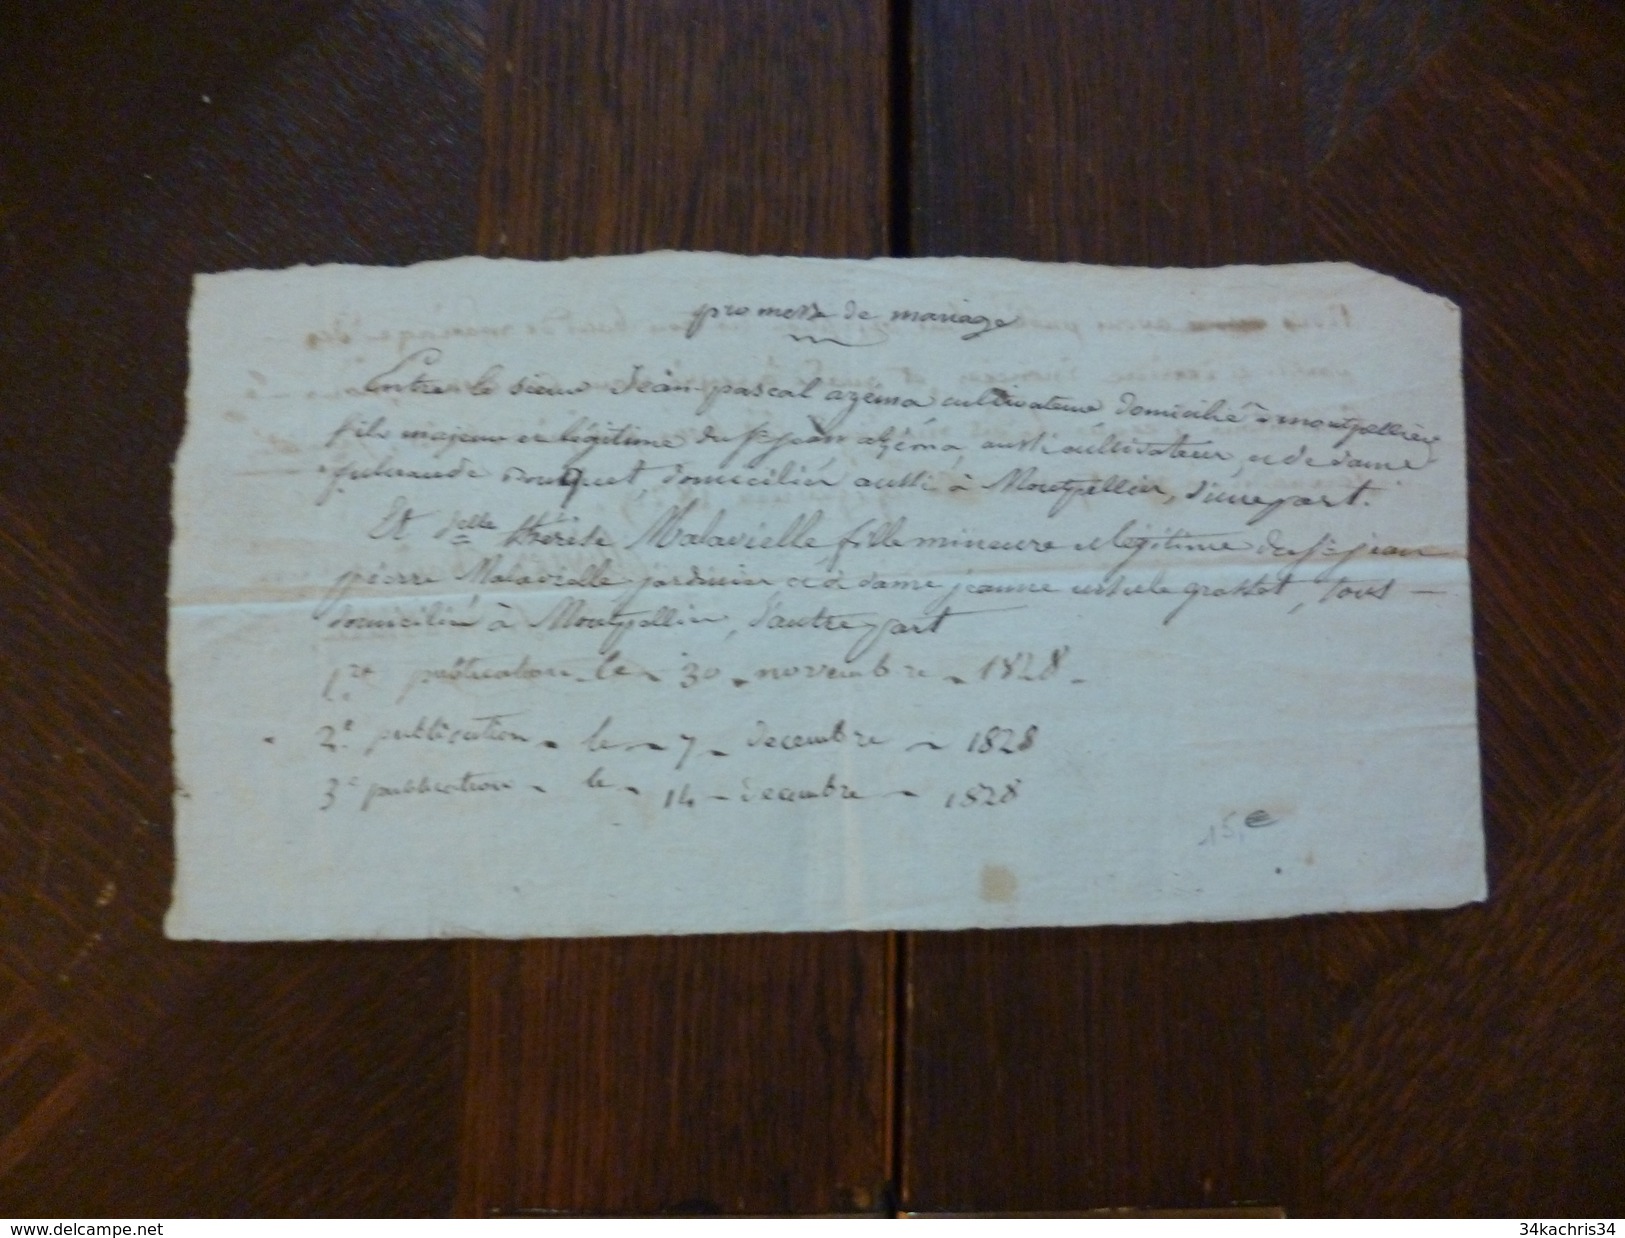 promesse de mariage
Entre le sieur Jean pascal azéma cultivateur domicilié à montpellier
fils majeur et légitime du Sr jean azéma, aussi cultivateur, et de dame
Bouquet, domiciliés aussi à Montpellier, d'une part.
Et delle thérèse Malavielle fille mineure et légitime du Sr jean
pierre Malavielle jardinier et de dame jeanne ursule grasset, tous
domiciliés à Montpellier, d'autre part
1re publication - le - 30 - novembre - 1828 -
2e publication - le - 7 - decembre - 1828
3e publication - le - 14 - decembre - 1828
15,e
www.delcampe.net
34kachris34